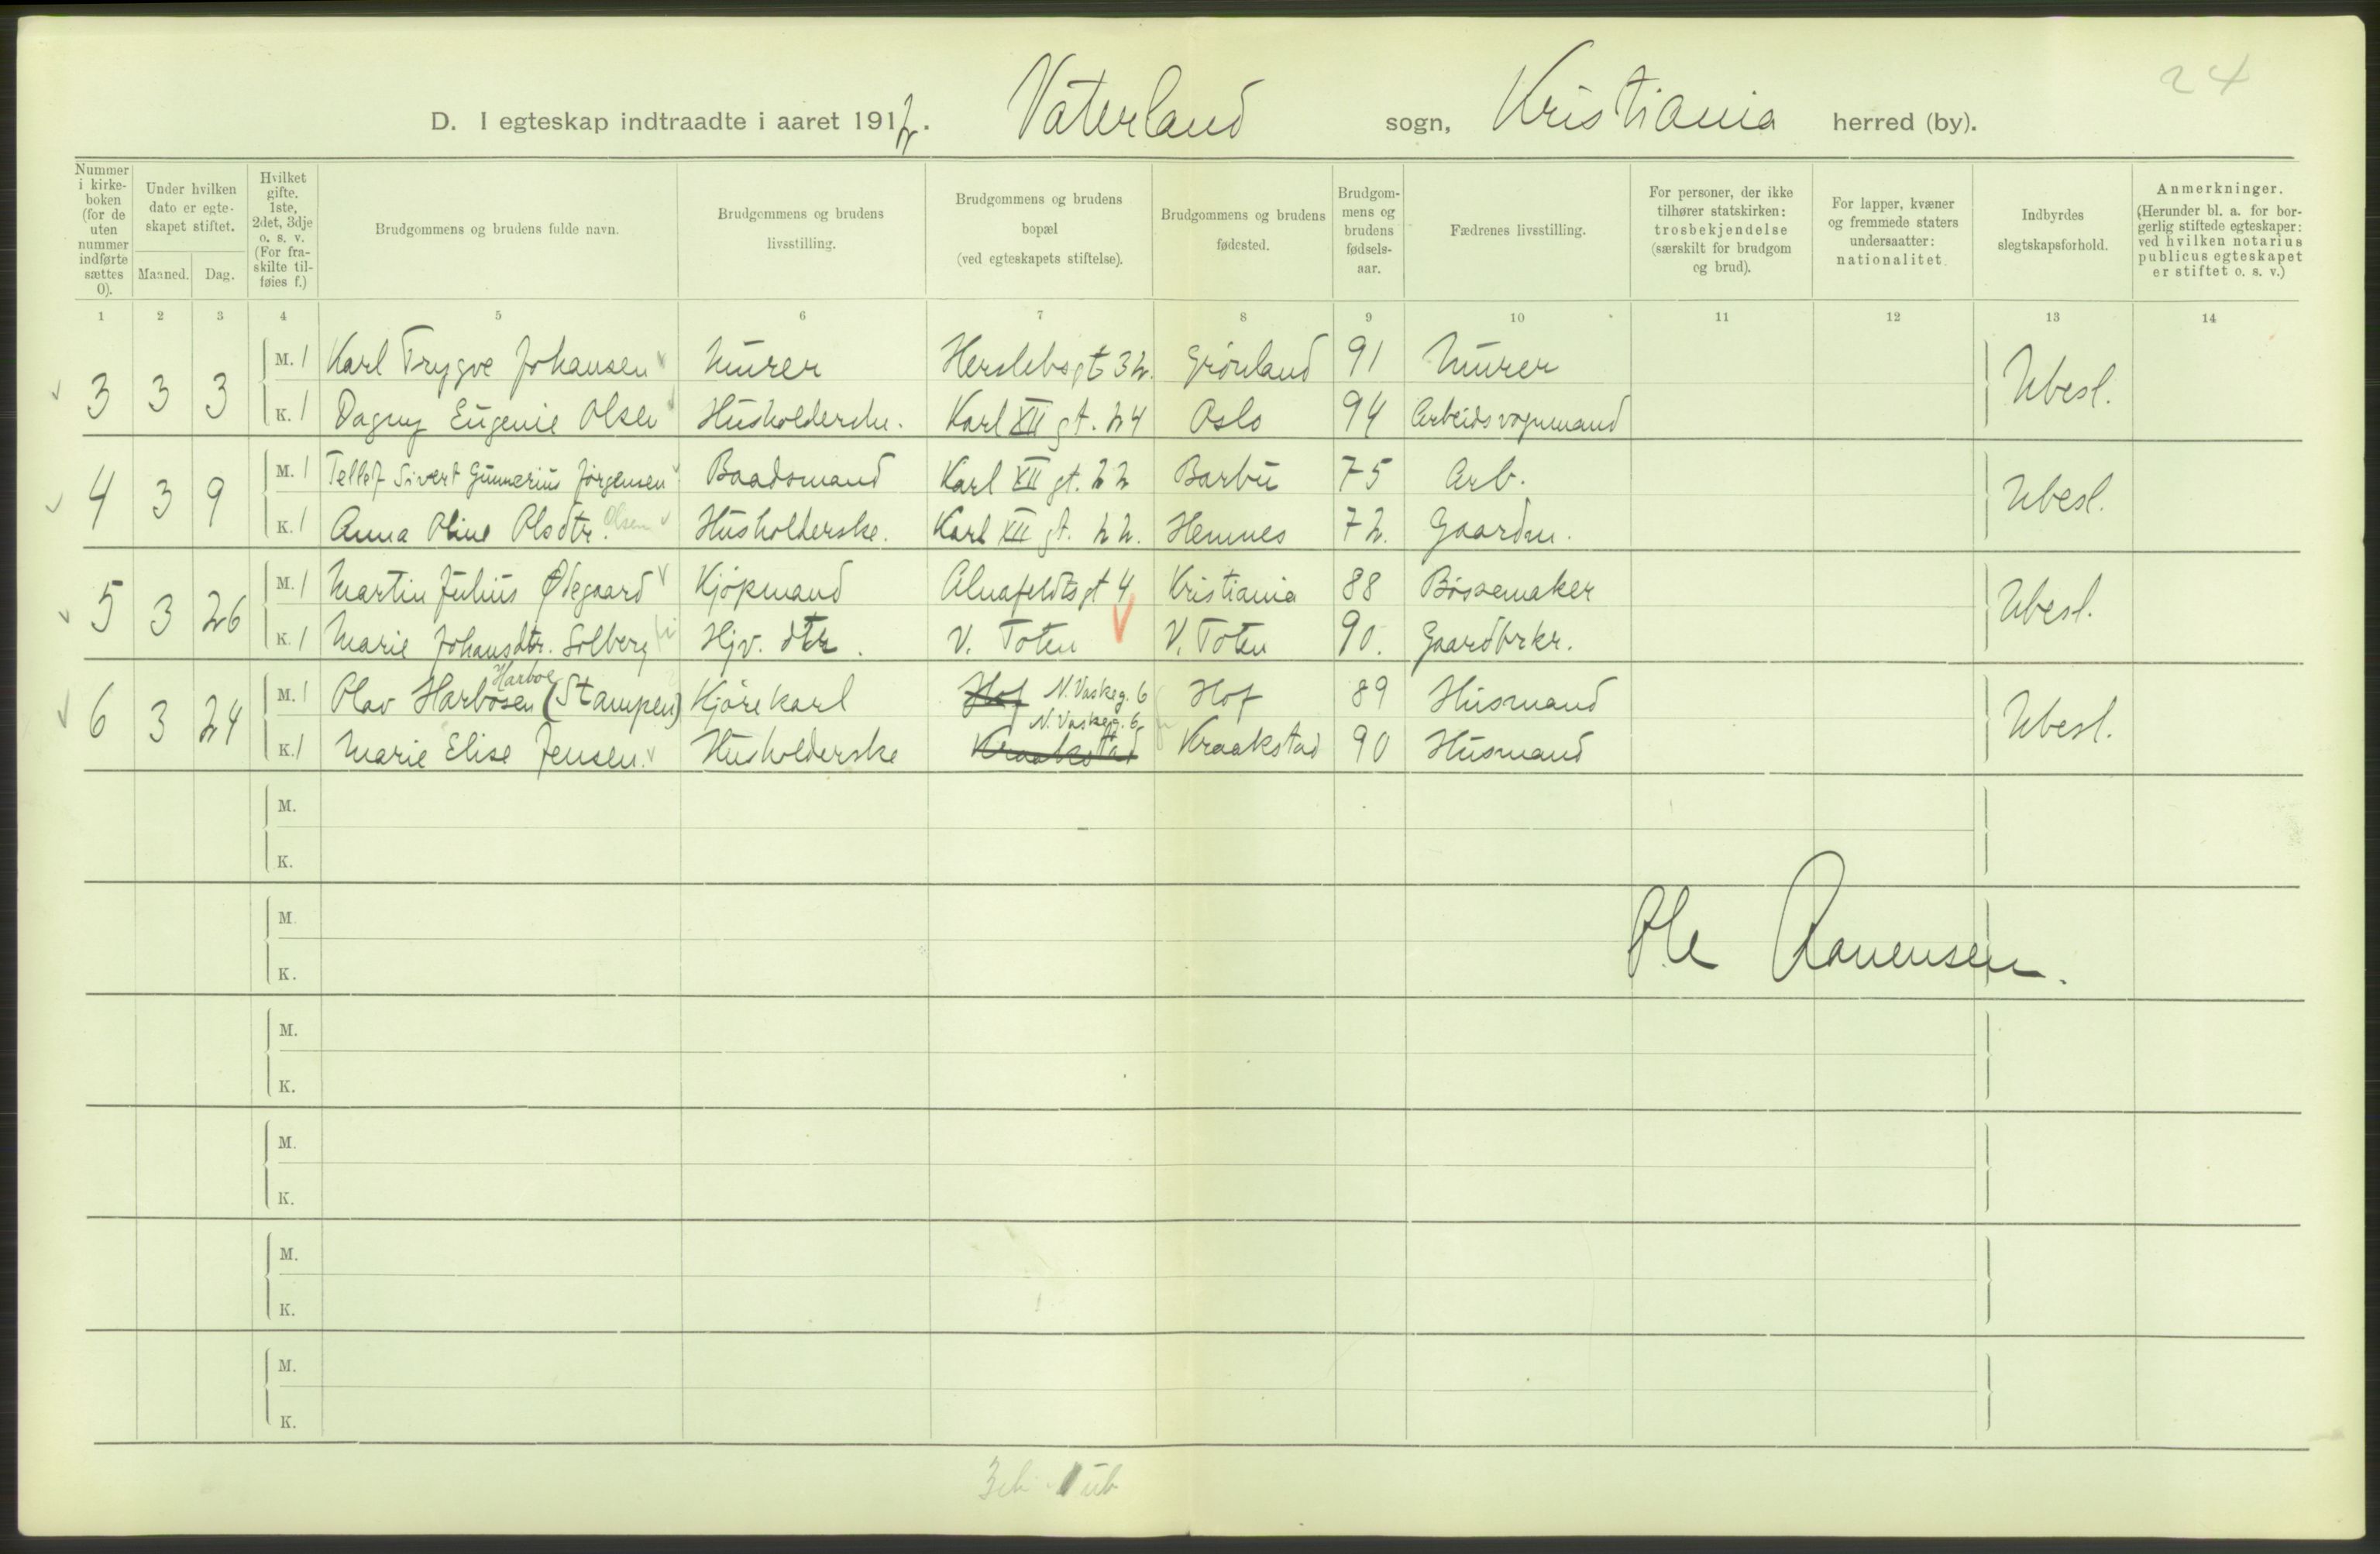 24
D. I egteskap indtraadte i aaret 1912. Vaterland sogn, Kristiania herred (by).
Nummer i kirkeboken (for de uten nummer indførte sættes 0).
Under hvilken dato er egteskapet stiftet.
Maaned. Dag.
Hvilket gifte. 1ste, 2det, 3dje o. s. v. (For fraskilte tilføies f.)
Brudgommens og brudens fulde navn.
Brudgommens og brudens livsstilling.
Brudgommens og brudens bopæl (ved egteskapets stiftelse).
Brudgommens og brudens fødested.
Brudgommens og brudens fødselsaar.
Fædrenes livsstilling.
For personer, der ikke tilhører statskirken: trosbekjendelse (særskilt for brudgom og brud).
For lapper, kvæner og fremmede staters undersaatter: nationalitet.
Indbyrdes slegtskapsforhold.
Anmerkninger. (Herunder bl. a. for borgerlig stiftede egteskaper: ved hvilken notarius publicus egteskapet er stiftet o. s. v.)
1 2 3 4 5 6 7 8 9 10 11 12 13 14
3 3 3 M. 1 Karl Trygve Johansen Murer Herslebsgt 32. Grönland 91 Murer Ubesl.
K. 1 Dagny Eugenie Olsen Husholderske. Karl XII gt. 24 Oslo 94 Arbeidsvognmand
4 3 9 M. 1 Tellef Sivert Gunnerius Jörgensen Baadsmand Karl XII gt. 22 Barbu 75 Arb. Ubesl.
K. 1 Anna Oline Olsdtr. Olsen Husholderske. Karl XII gt. 22. Hemnes 72. Gaardm.
5 3 26 M. 1 Martin Julius Ødegaard Kjöpmand Alnafeldtsgt 4 Kristiania 88 Bössemaker Ubesl.
K. 1 Marie Johansdtr. Solberg Hjv. dtr. V. Toten V. Toten 90. Gaardbrkr.
Harboe
6 3 24 M. 1 Olav Harbosen (Stampen) Kjörekarl Hof N. Vaskeg. 6 Hof 89 Husmand Ubesl.
N. Vaskeg. 6
K. 1 Marie Elise Jensen. Husholderske Kraakstad Kraakstad 90 Husmand
M.
K.
M.
K.
Ole Ravensen.
M.
K.
M.
K.
M.
K.
M.
K.